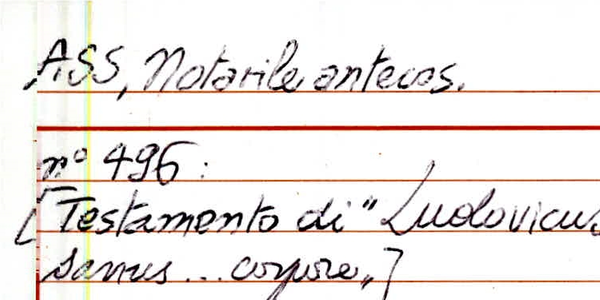 ASS, Notarile antecos.
n° 496:
[Testamento di "Ludovicus
sanus... corpore"]